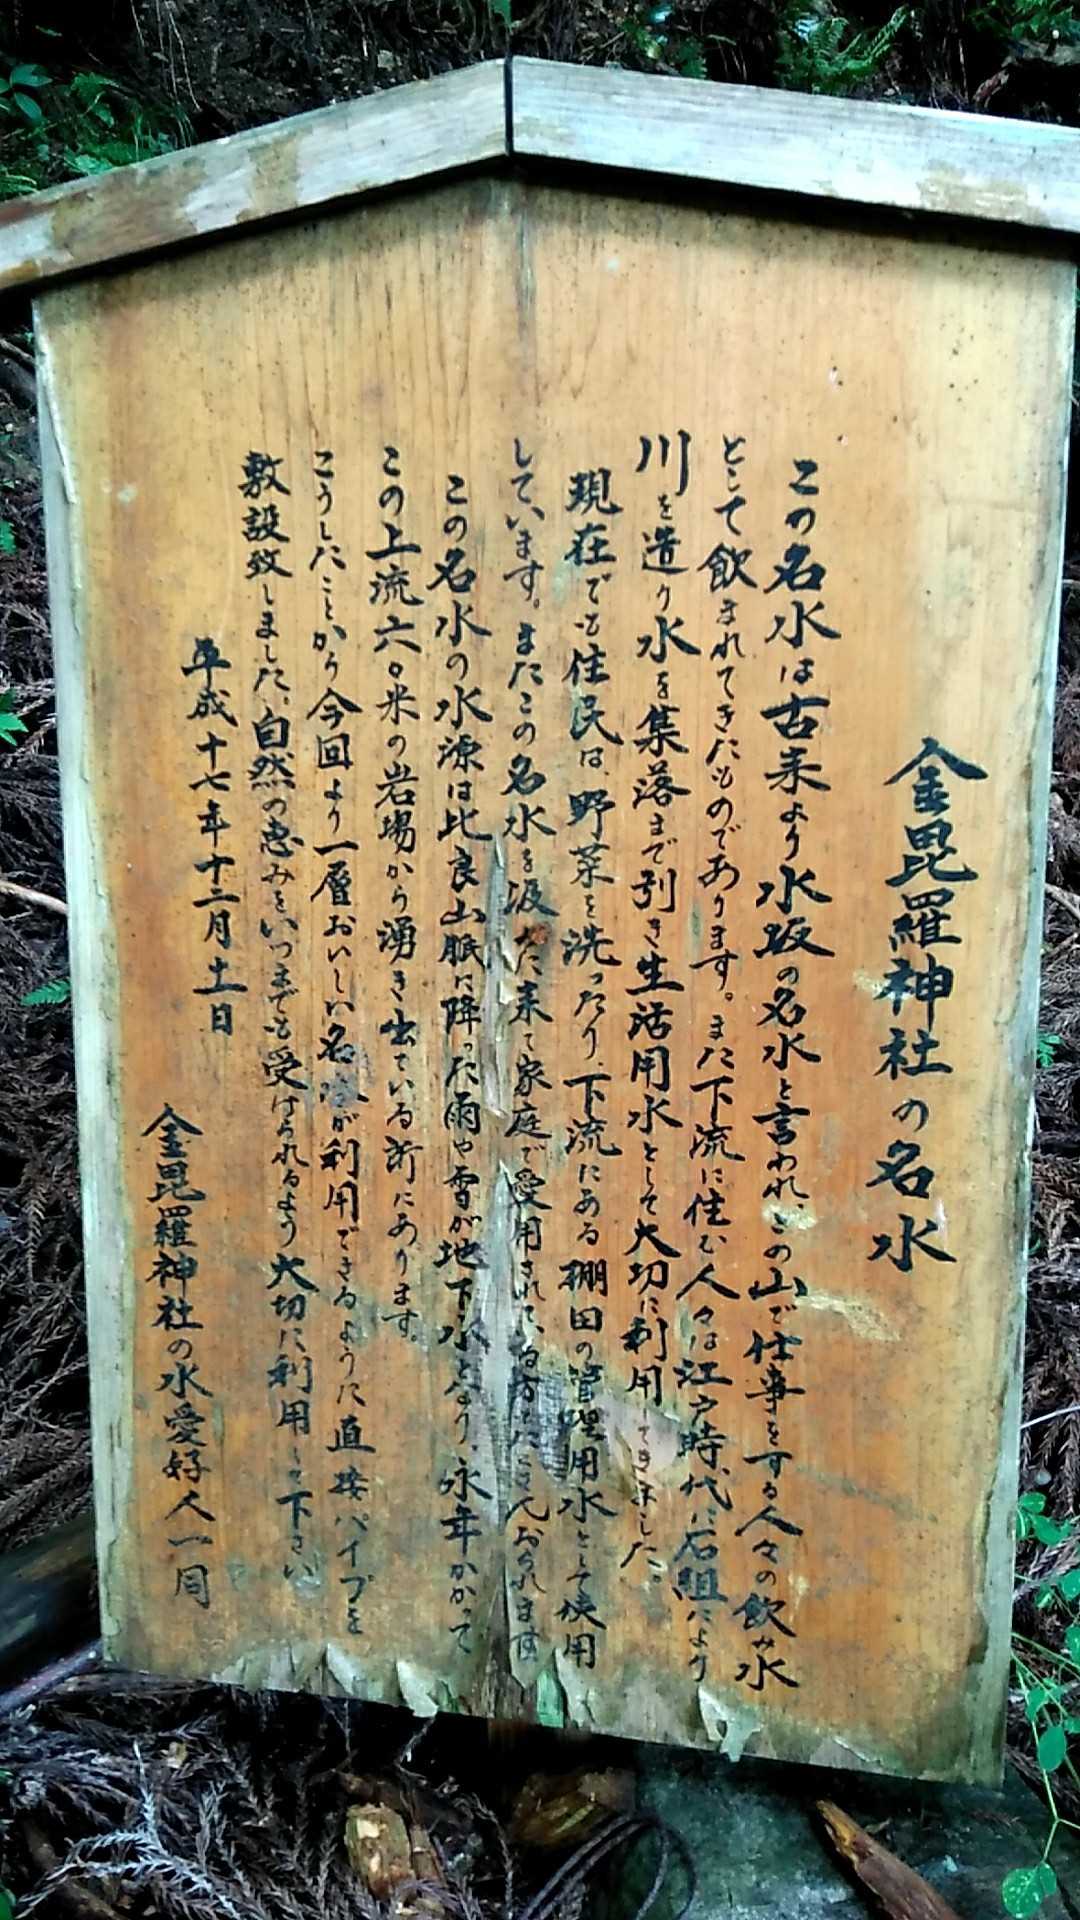 金毘羅神社の名水
この名水は古来より水坂の名水と言われ、この山で仕事をする人々の飲み水
として飲まれてきたものであります。また下流に住む人々は江戸時代に石組により
川を造り水を集落まで引き生活用水として大切に利用してきました。
現在でも住民は、野菜を洗ったり、下流にある棚田の管理用水として使用
しています。またこの名水を汲みに来て家庭で愛用されている方もたくさんおられます
この名水の水源は比良山脈に降った雨や雪が地下水となり、永年かかって
この上流六〇米の岩場から湧き出ている所にあります。
こうしたことから今回より一層おいしい名水が利用できるように直接パイプを
敷設致しました。自然の恵みをいつまでも受けられるよう大切に利用して下さい
平成十七年十二月土日
金毘羅神社の水愛好人一同